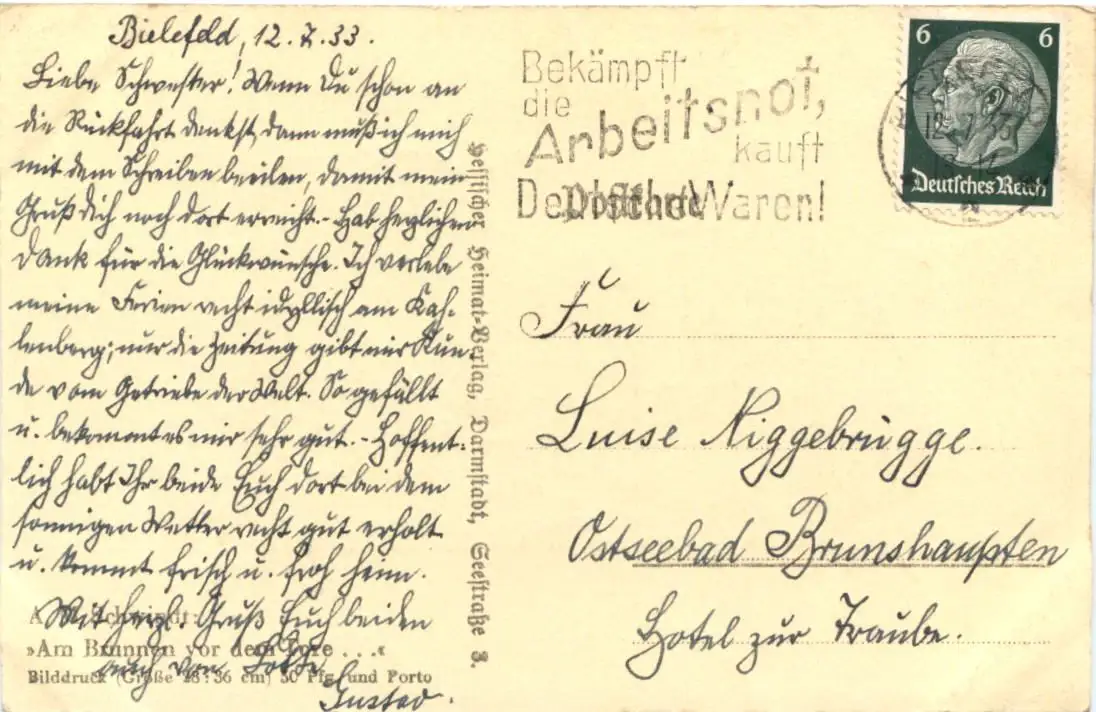 Bielefeld, 12.7.33.
Liebe Schwester! Wenn Du schon an
die Rückfahrt denkst, dann muß ich mich
mit dem Schreiben beeilen, damit mein
Gruß Dich noch dort erreicht. - Hab herzlichen
Dank für die Glückwünsche. Ich verlebe
meine Ferien recht idyllisch am Kah-
lenberg; nur die Zeitung gibt mir Kun-
de vom Getriebe der Welt. So gefällt
u. bekommt es mir sehr gut. - Hoffent-
lich habt Ihr beide Euch dort bei dem
sonnigen Wetter recht gut erholt
u. kommt frisch u. froh heim.
Mit herzl. Gruß Euch beiden
auch von
Gustav.
»Am Brunnen vor dem Tore ...«
Bilddruck (Größe 28:36 cm) 50 Pfg. und Porto
Hessischer Heimat-Verlag, Darmstadt, Seestraße 3.
Bekämpft
die
Arbeitsnot,
kauft
Deutsche Waren!
Postkarte
6 6
Deutsches Reich
12.7.33
Frau
Luise Niggebrügge.
Ostseebad Brunshaupten
Hotel zur Traube.